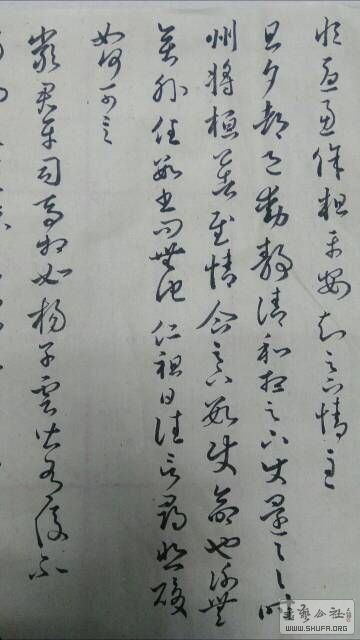 粗平安
旦夕都邑動靜清和想足下使還一一時
州將桓公告慰情企足下數使命也謝無
奕外任數書問無他仁祖日往言尋悲酸
如何可言
嚴君平司馬相如楊子雲皆有後不
書藝公社
WWW.SHUFA.ORG